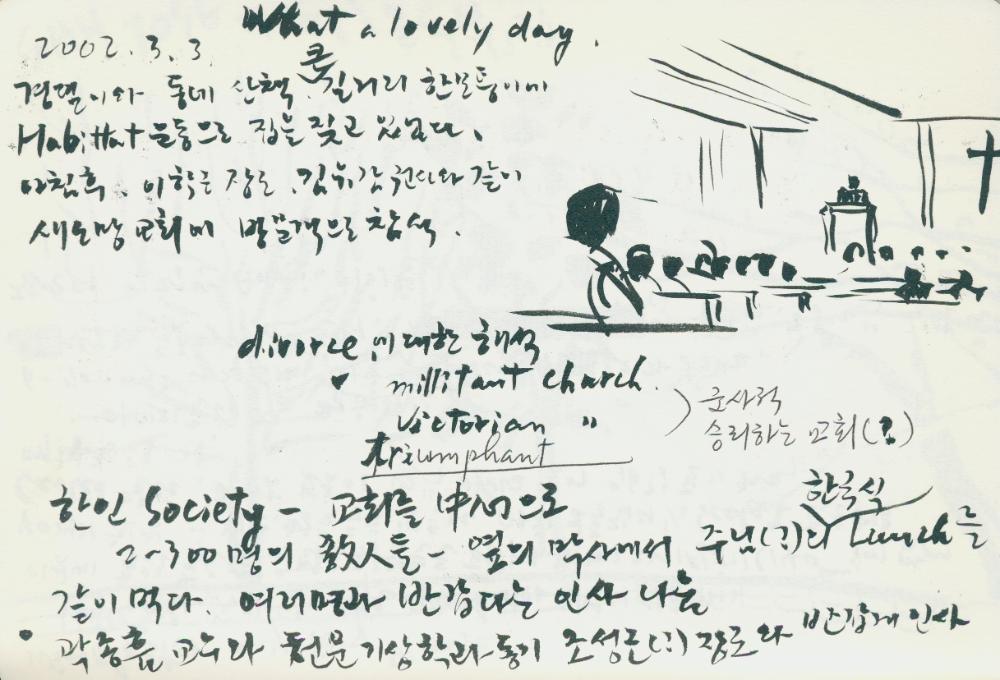 What a lovely day.
2002. 3. 3.
경열이와 동네 산책. 큰 길거리 한모퉁이에
Habittat 운동으로 집을 짖고 있었다.
아침흑. 이학근 장로. 권사와 같이
새소망 교회에 방문객으로 참석.
divorce 에 대한 해석
• millitant church.
victorian 〃
triumphant
군사적
승리하는 교회(?)
하인 Society - 교회를 中心으로
2-300명의 敎人들 - 옆의 막사에서 주님(?)의 한국식 Lunch를
같이 먹다. 여러명과 반갑다는 인사 나눔
• 곽종흠 교수와 천문기상학과 동기 조성근(?) 장로와 반갑게 인사